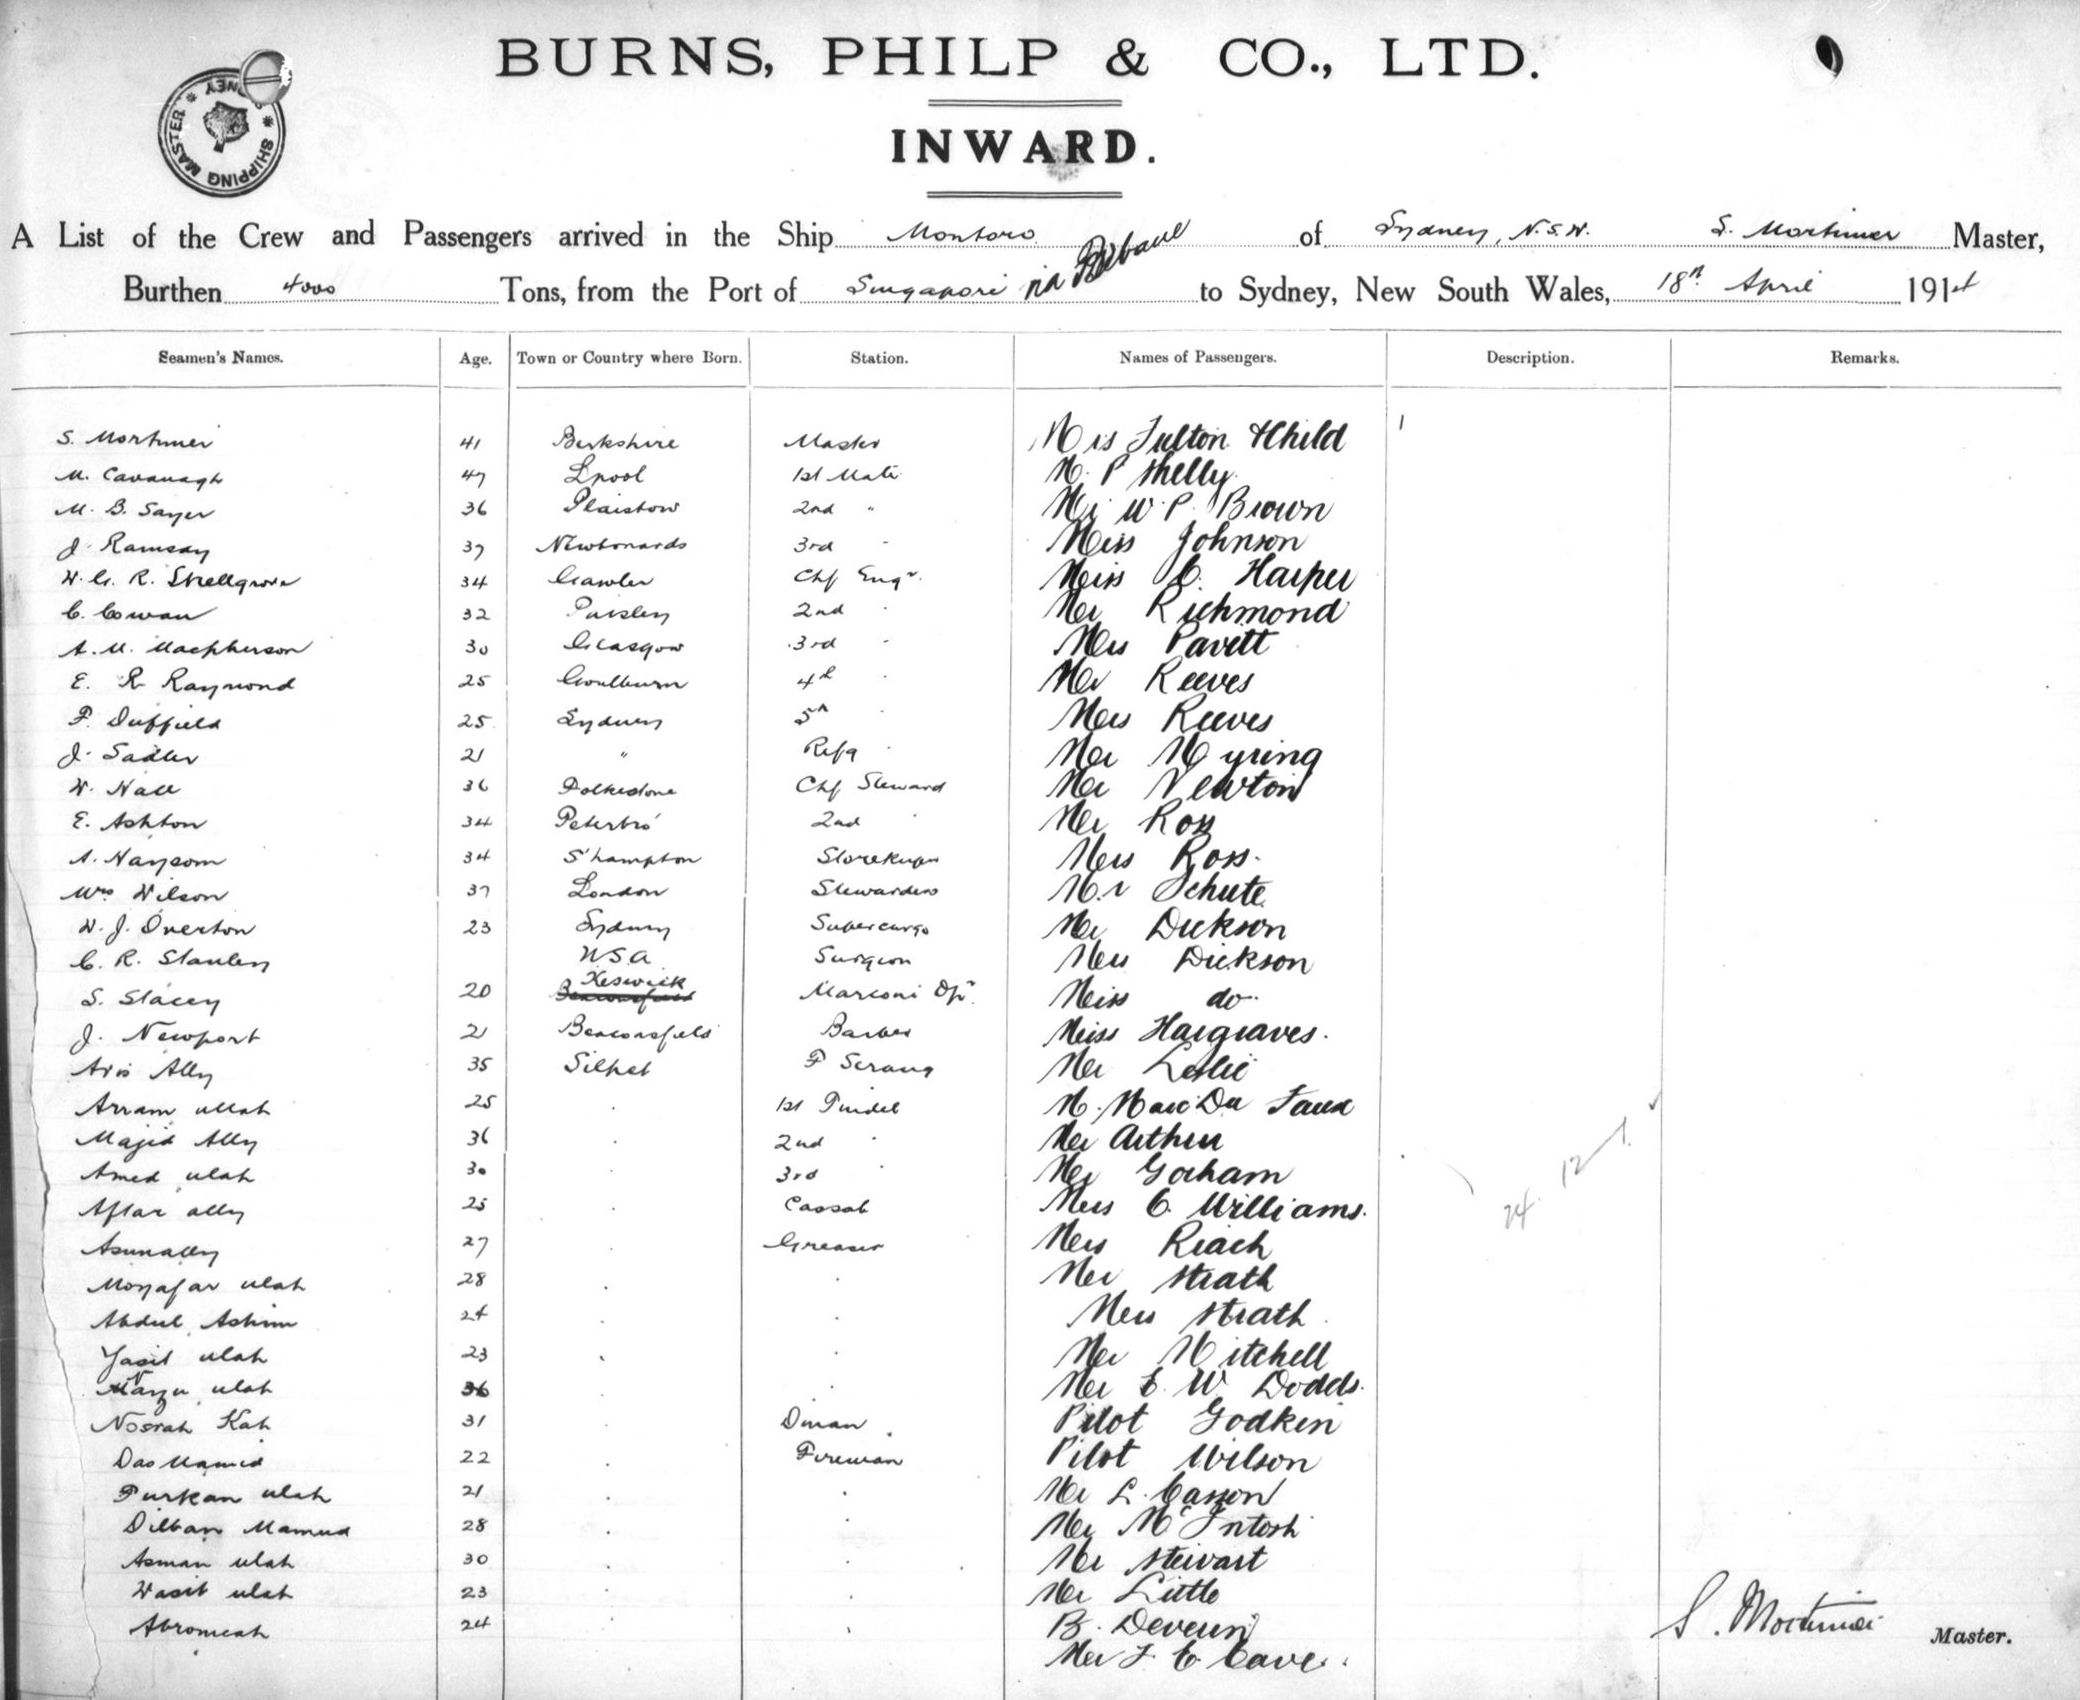 BURNS, PHILP & CO., LTD.
SHIPPING MASTER * SYDNEY *
INWARD.
A List of the Crew and Passengers arrived in the Ship Montoro of Sydney, N.S.W. S. Mortimer Master,
Burthen 4000 Tons, from the Port of Singapore via to Sydney, New South Wales, 18th April 1914
Seamen's Names. Age. Town or Country where Born. Station. Names of Passengers. Description. Remarks.
S. Mortimer 41 Berkshire Master Mrs Fulton & Child 1
M. Cavanagh 47 Lpool 1st Mate M. P Shelly
M. B. Sayer 36 Plaistow 2nd " Mr W. P. Brown
J. Ramsay 37 Newtonards 3rd " Miss Johnson
W. G. R. Snellgrove 34 Gawler Chf Engr. Miss C. Harper
C. Cowan 32 Paisley 2nd " Mr Richmond
A. M. Macpherson 30 Glasgow 3rd " Mrs Pavitt
E. R Raymond 25 Goulburn 4th " Mr Reeves
F. Duffield 25 Sydney 5th " Mrs Reeves
J. Sadler 21 " Refg " Mr Myring
W. Hall 36 Folkestone Chf Steward Mr Newton
E. Ashton 34 Peterbro' 2nd " Mr Ross
A. Haysom 34 S'hampton Storekeeper Mrs Ross.
Mrs Wilson 37 London Stewardess Mr Schute
W. J. Overton 23 Sydney Supercargo Mr Dickson
C. R. Stanley USA Surgeon Mrs Dickson
S. Stacey 20 Keswick Marconi Opr. Miss do.
J. Newport 21 Beaconsfield Barber Miss Hargraves.
Avis Ally 35 Silhet F Serang Mr Leslie
Arram ullah 25 " 1st Tindel M. Marc Du Faur
Majid Ally 36 " 2nd " Mr Arthur
Amed ulah 30 " 3rd " Mr Gorham
Aftar ally 25 " Cassab Mrs C. Williams. 24. 12
Asunally 27 " Greaser Mrs Riach
Mozafar ulah 28 " " Mr Strath
Abdul Ashim 24 " " Mrs Strath
Yasit ulah 23 " " Mr Mitchell
ulah 36 " " Mr E. W Dodds.
Nosrah Kah 31 " Dman Pilot Godkin
Das Mamid 22 " Fireman Pilot Wilson
Furkan ulah 21 " " Mr L. Casson
Dilban Mamud 28 " " Mr McIntosh
Asman ulah 30 " " Mr Stewart
Wasit ulah 23 " " Mr Little
Abromeah 24 " " B.
Mr F. E. Cave.
S. Mortimer Master.